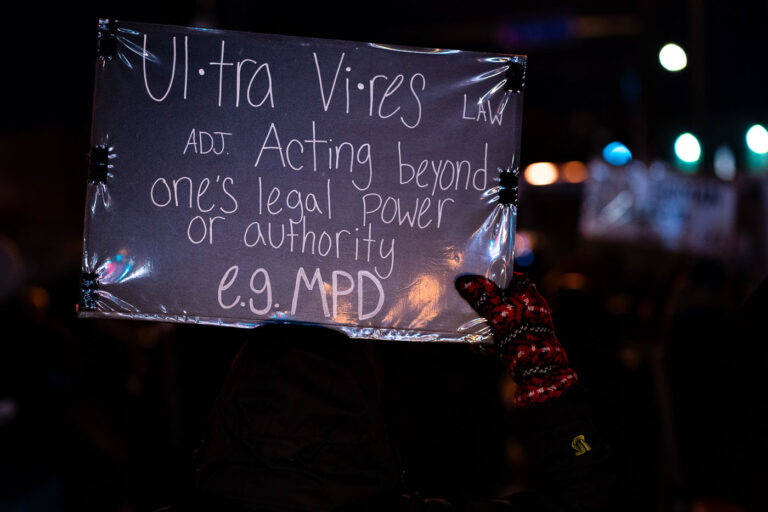 Ul·tra Vi·res LAW
ADJ. Acting beyond
one's legal power
or authority
e.g. MPD